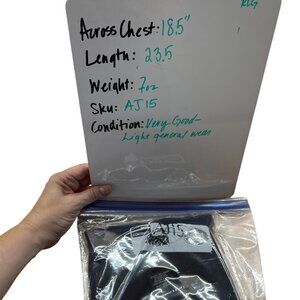 RLG
Across Chest: 18.5"
Length: 23.5
Weight: 7oz
Sku: AJ15
Condition: Very Good-
Light general wear